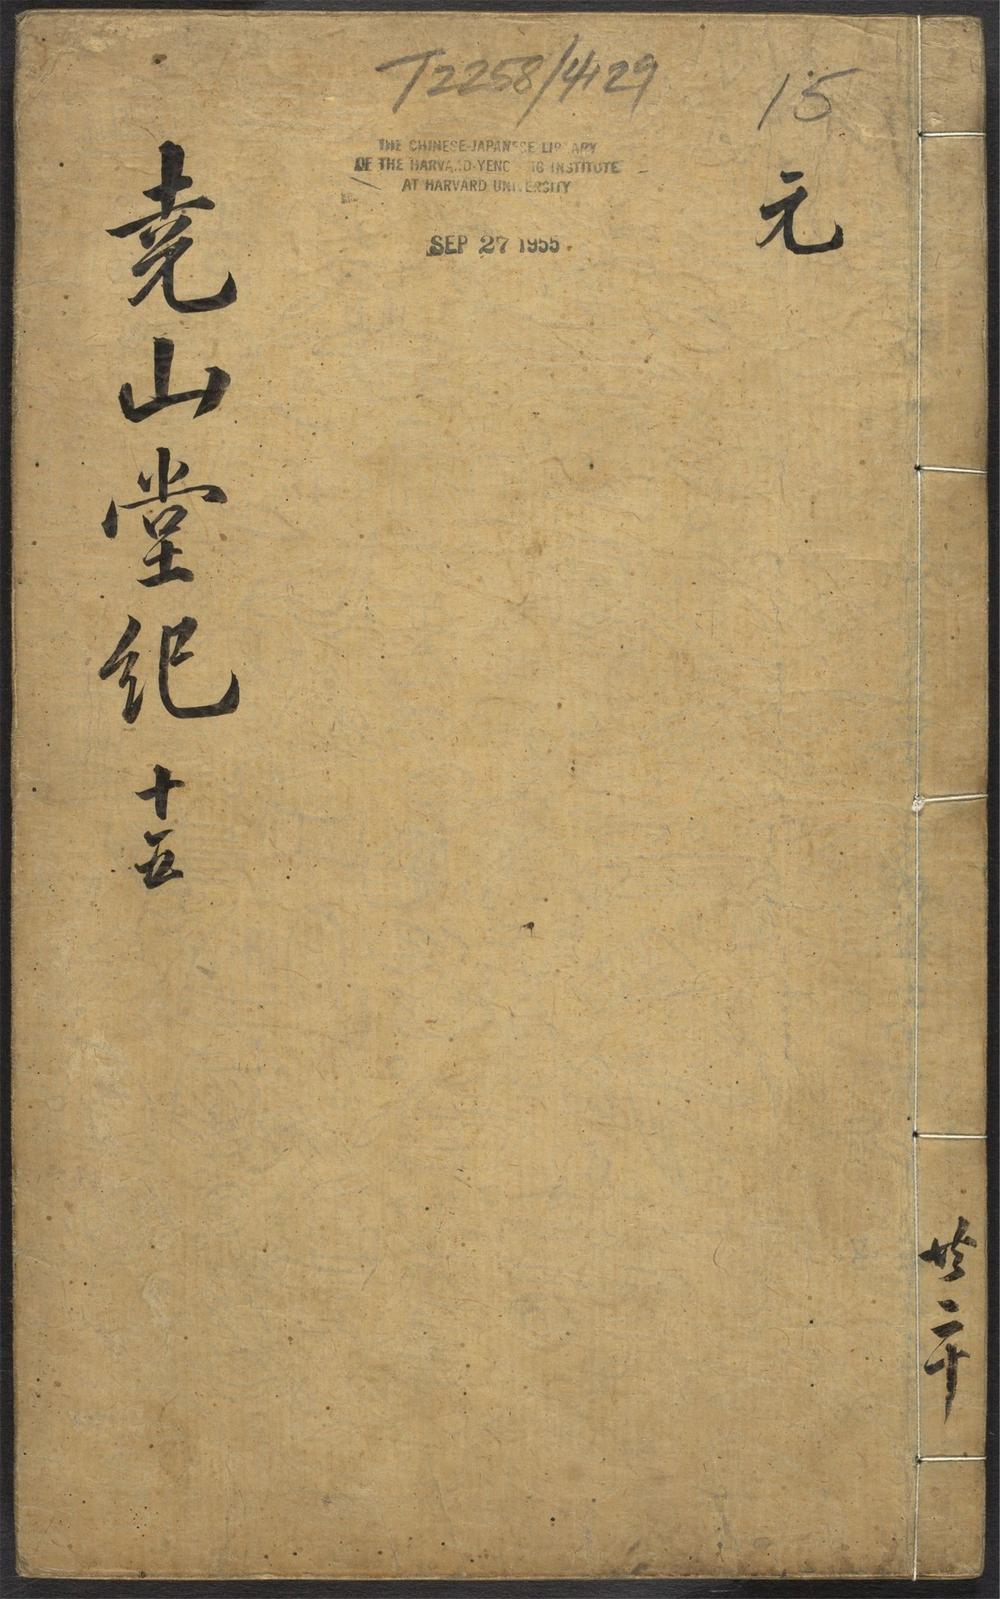 T2258/4129
15
THE CHINESE-JAPANESE LIBRARY
OF THE HARVARD-YENCHING INSTITUTE
AT HARVARD UNIVERSITY
SEP 27 1955
元
堯山堂紀 十五
共二十